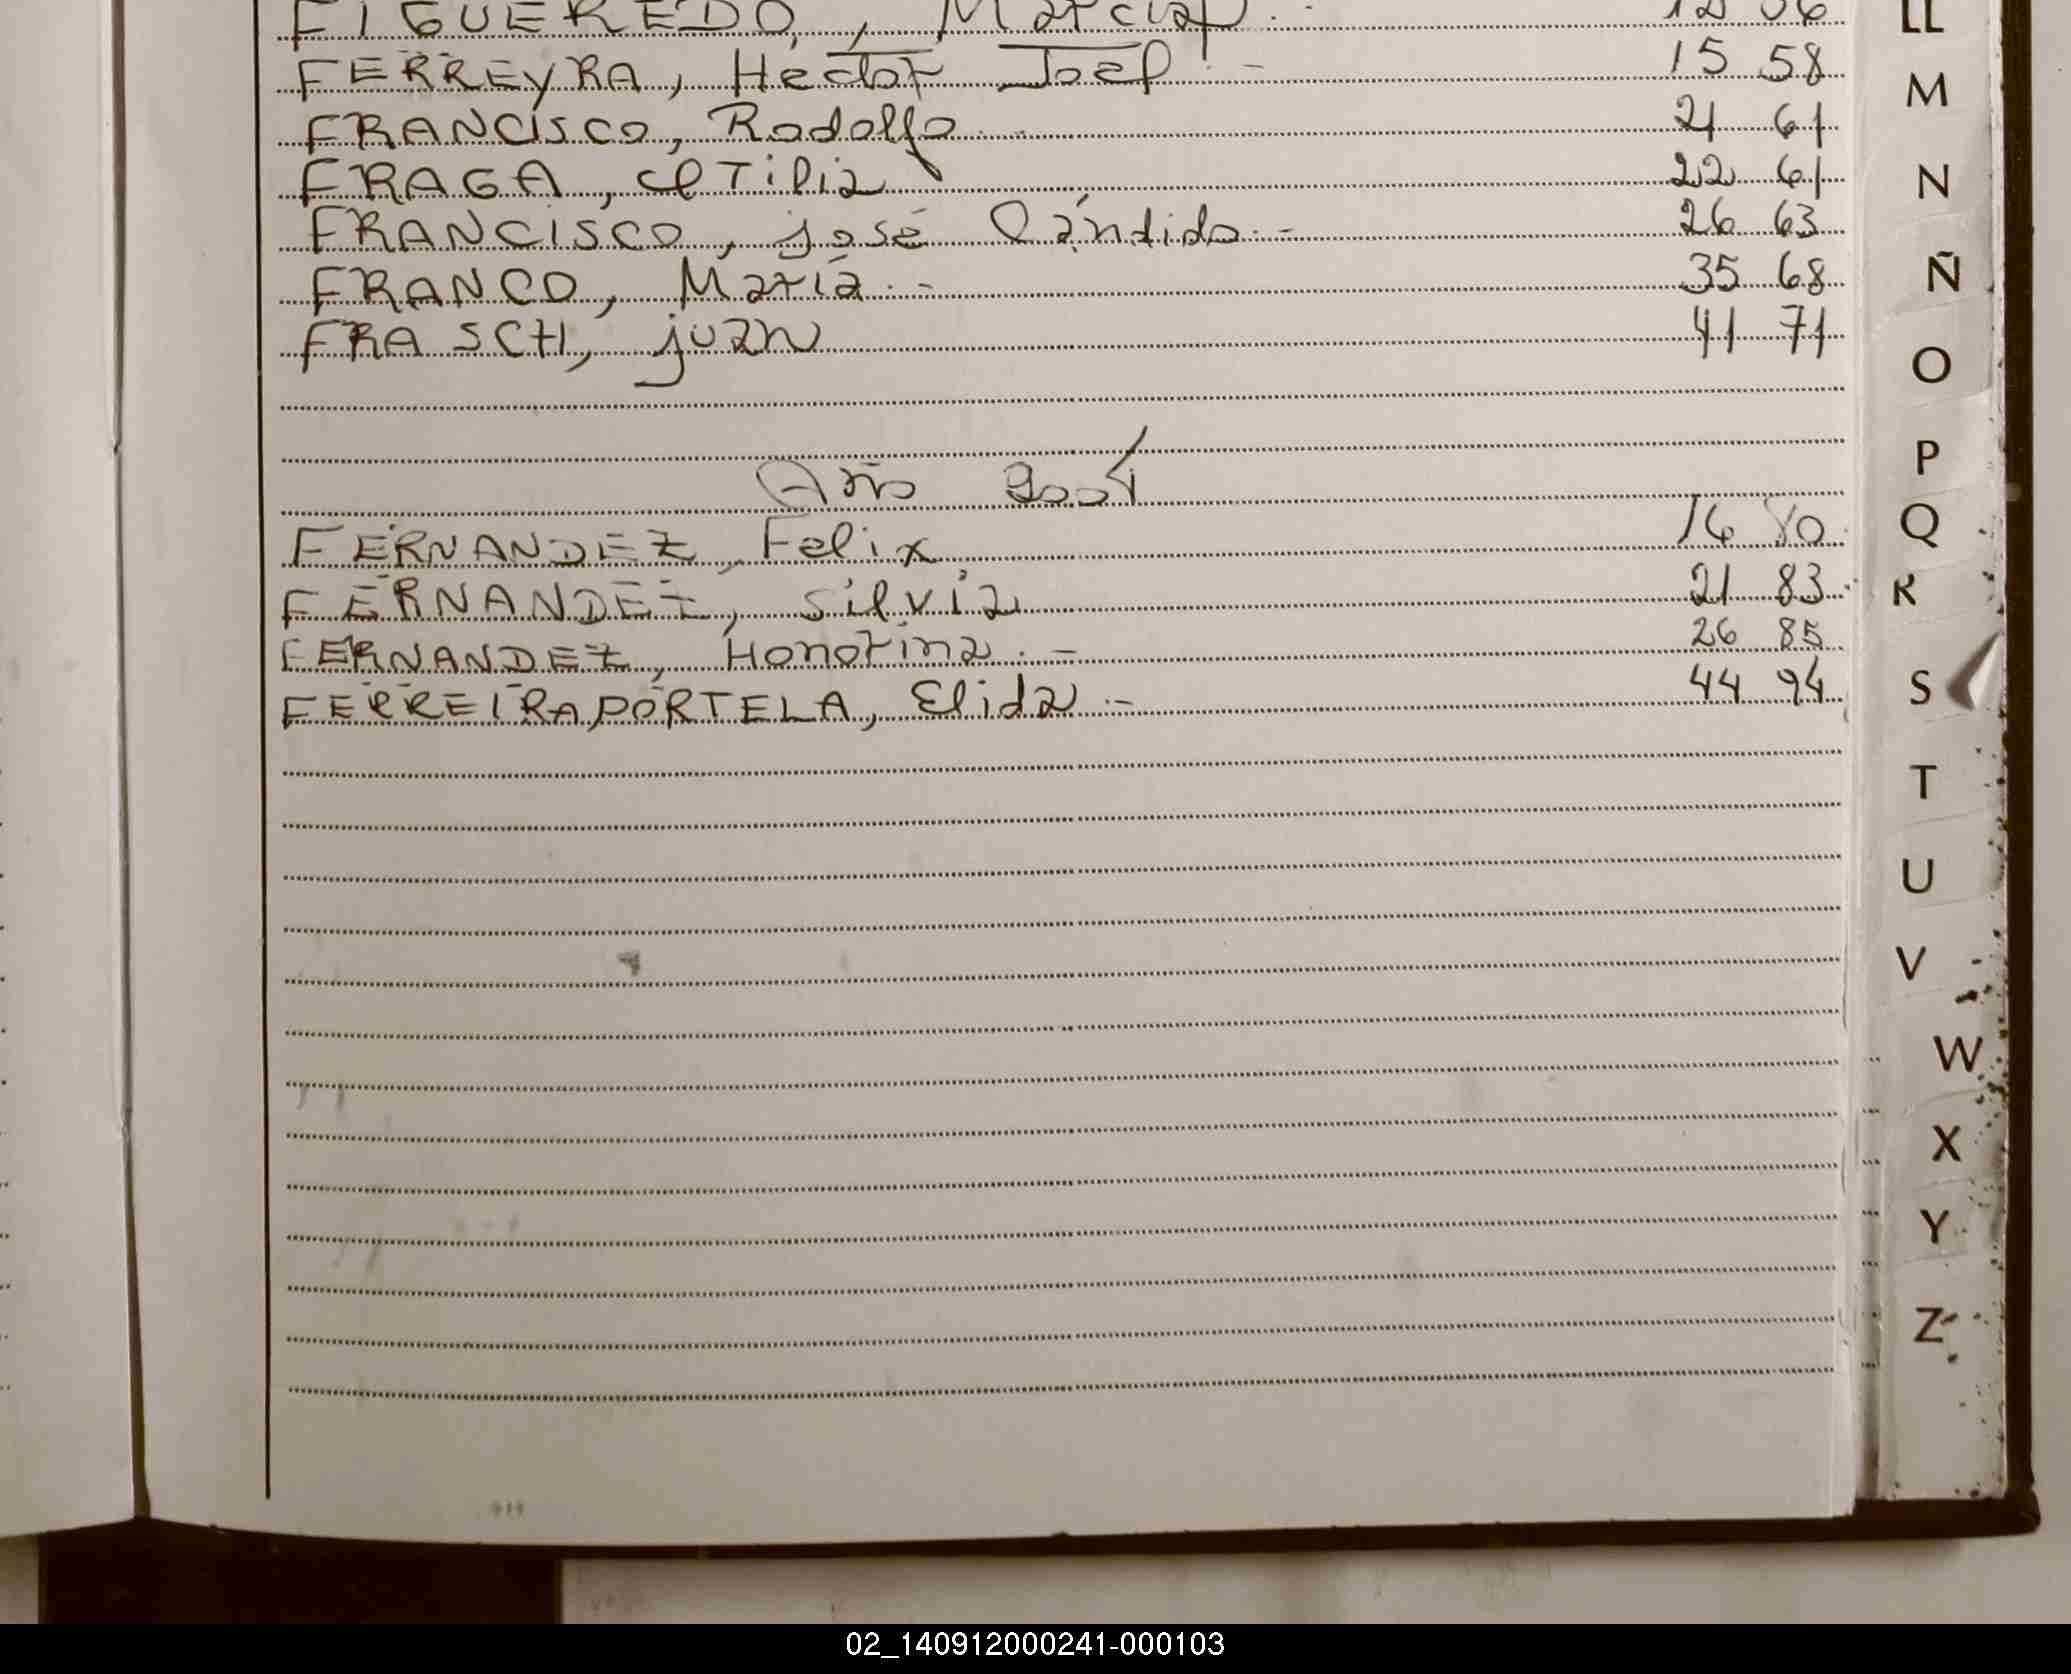 FIGUEREDO, Marcial.-
FERREYRA, Hector Joel.- 15 58
FRANCISCO, Rodolfo.- 21 61
FRAGA, OTilia 22 61
FRANCISCO, José Cándido.- 26 63
FRANCO, María.- 35 68
FRASCHI, juan 41 71
Año 2004
FERNANDEZ, Felix 16 80
FERNANDEZ, Silvia 21 83
FERNANDEZ, Honorina.- 26 85
FERREIRA PORTELA, Elida.- 44 94
LL
M
N
Ñ
O
P
Q
R
S
T
U
V
W
X
Y
Z
02_140912000241-000103